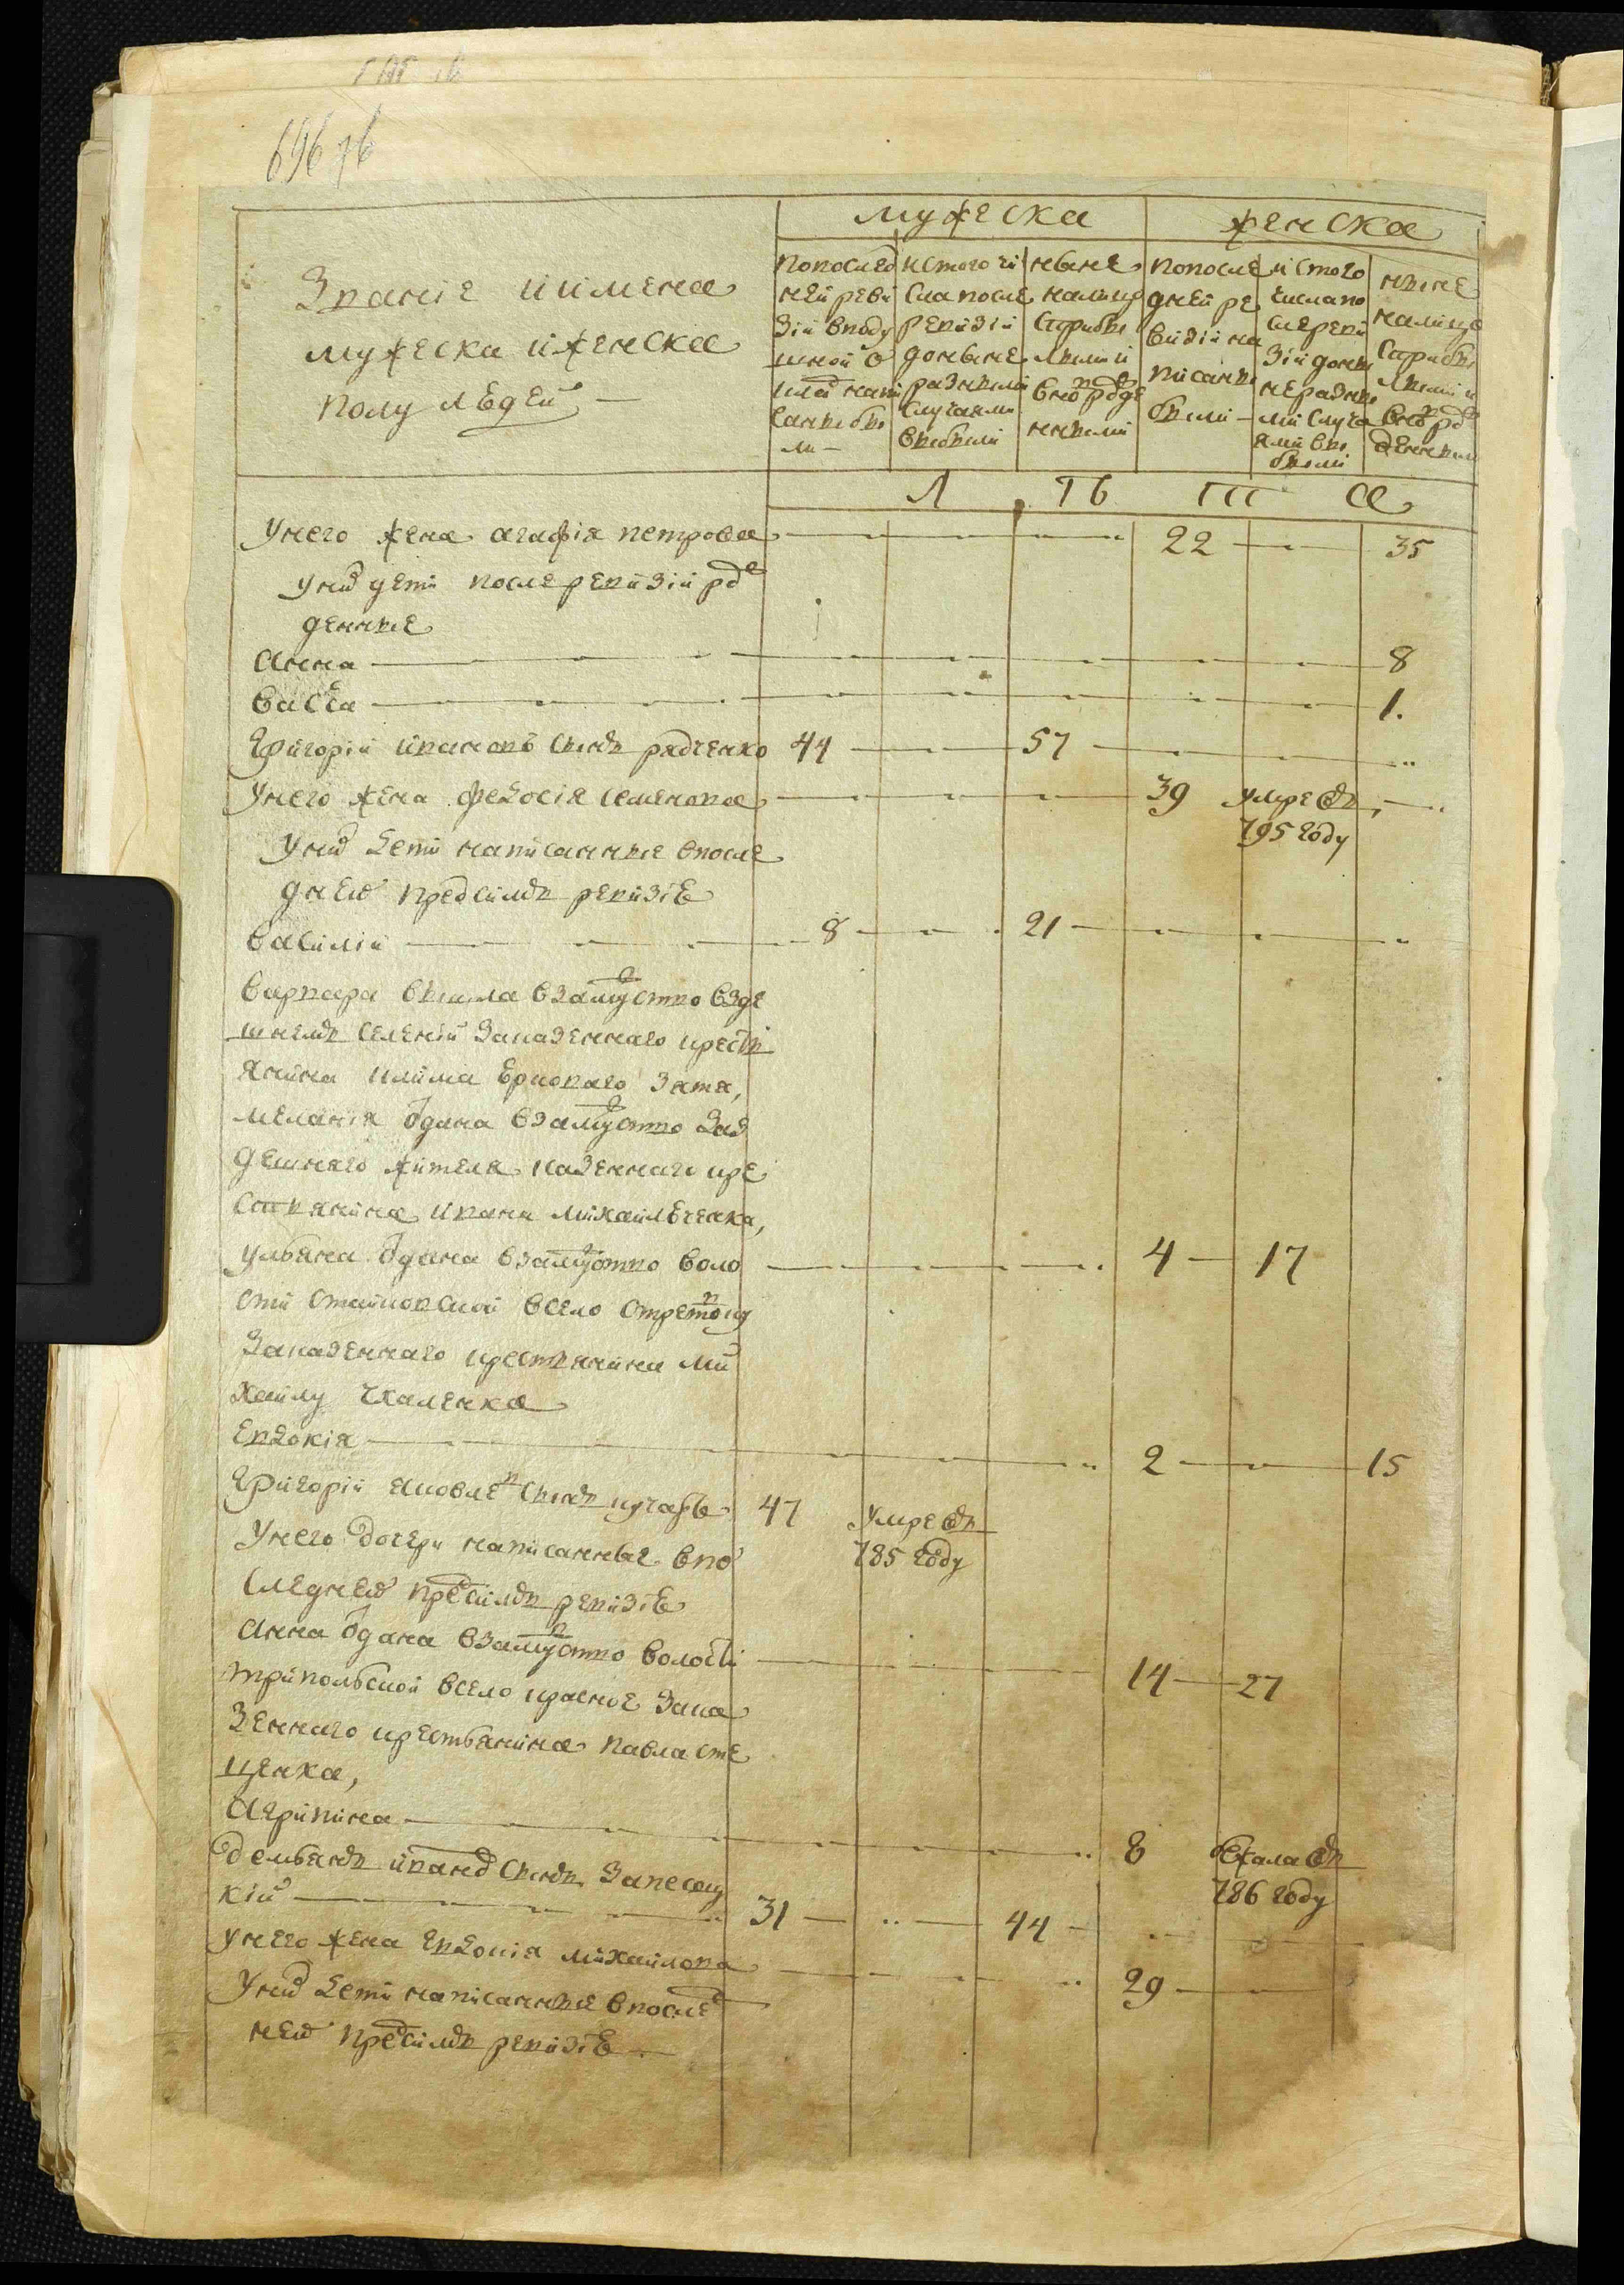 696 76
мужеска женска
Званіе и имена
мужеска и женска
полу людей —
попослед
ней реви
зіи вподу
шной о
клад напи
санные бы
ли —
ис того чи
сла после
ревизіи
доныне
разными
случаями
выбыли
ныне
налицо
старыхъ
лишни
вновь рожде
нными
попосле
дней ре
визіи на
писаны
были —
ис того
числа по
сле реви
зіи доны
не разны
ми случа
ями вы
были
ныне
налицо
старыхъ
вновь рож
денными
Л Ть Т А
унего жена агафія петрова 22 35
уних дети после ревизіи рож
денные
анна 8
васса 1.
григорій иванов сынъ радченко 44 57
унего жена феодосія семенова 39 умре въ
795 году
уних дети написанные впосле
дней пред симъ ревизіе
василій 8 21
варвара вышла взамужство взде
шнемъ селеніи заказенного крестъ
янина зятя,
меланія отдана взамужство заз
дешняго жителя казенного кре
стьянина ивана михайлеченка,
ульяна отдана взамужство воло 4 17
сти стайковской всело стретовку
заказенного крестьянина ми
хайлу чкаленка
евдокія 2 15
григорій яковлев сынъ кучаръ 47 умре въ
785 году
унего дочери написанные впо
следней пред симъ ревизіе
анна отдана взамужство волости 14 27
трипольской всело красное зака
зенного крестьянина павла сте
ценка,
агрипина 8 бежала въ
786 году
демьянъ иванов сынъ залесскій
кій 31 44
унего жена евдокія михайлова 29
уних дети написанные впослед
ней пред симъ ревизіе